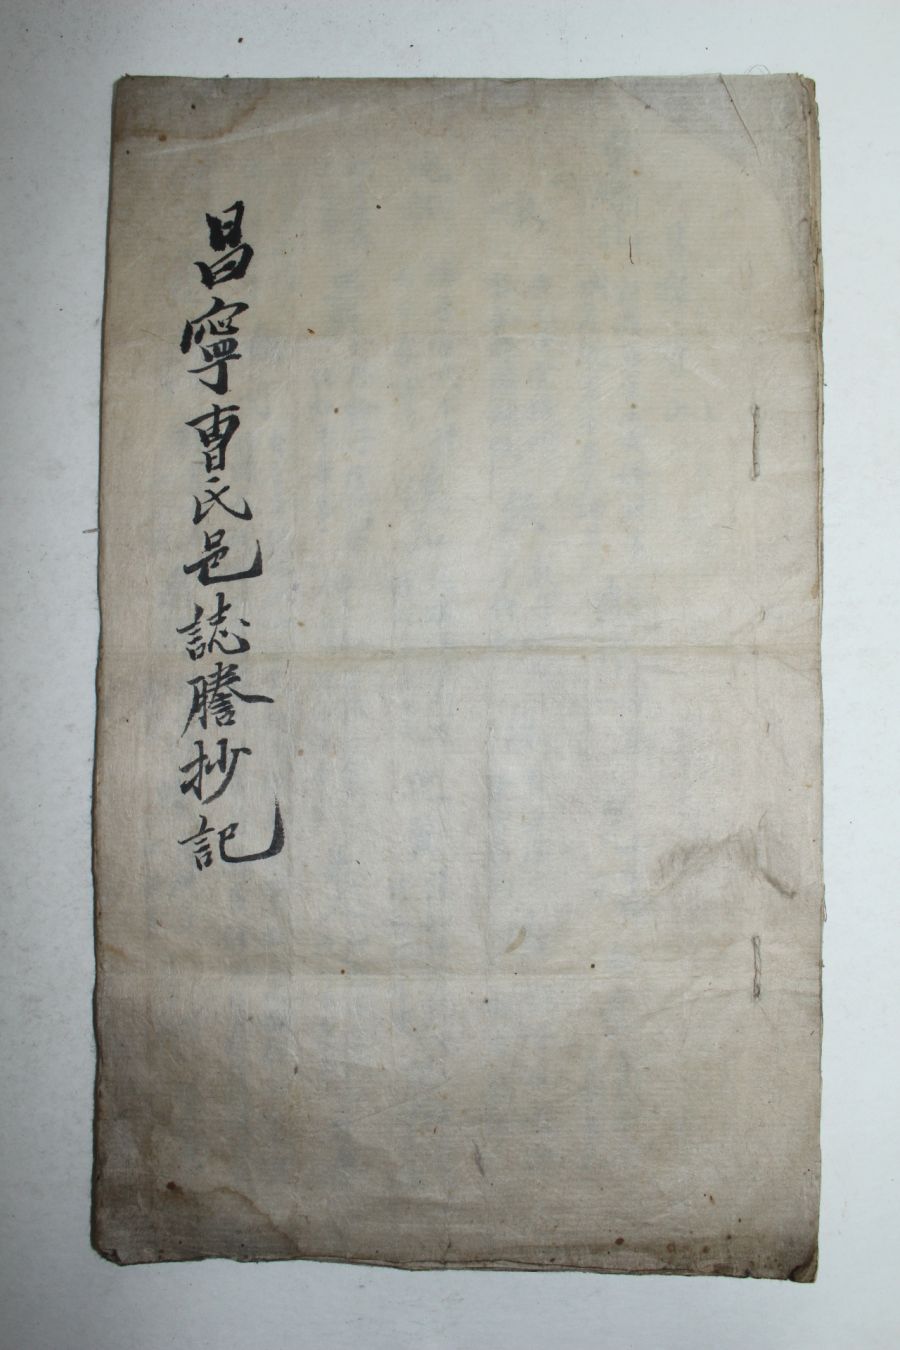 昌寧曺氏邑誌謄抄記